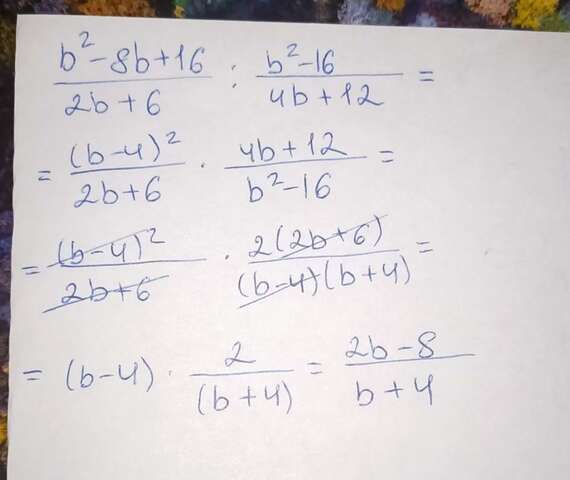 (b²-8b+16)/(2b+6) : (b²-16)/(4b+12) =
= (b-4)²/(2b+6) · (4b+12)/(b²-16) =
= (b-4)²/(2b+6) · 2(2b+6)/((b-4)(b+4)) =
= (b-4) · 2/(b+4) = (2b-8)/(b+4)